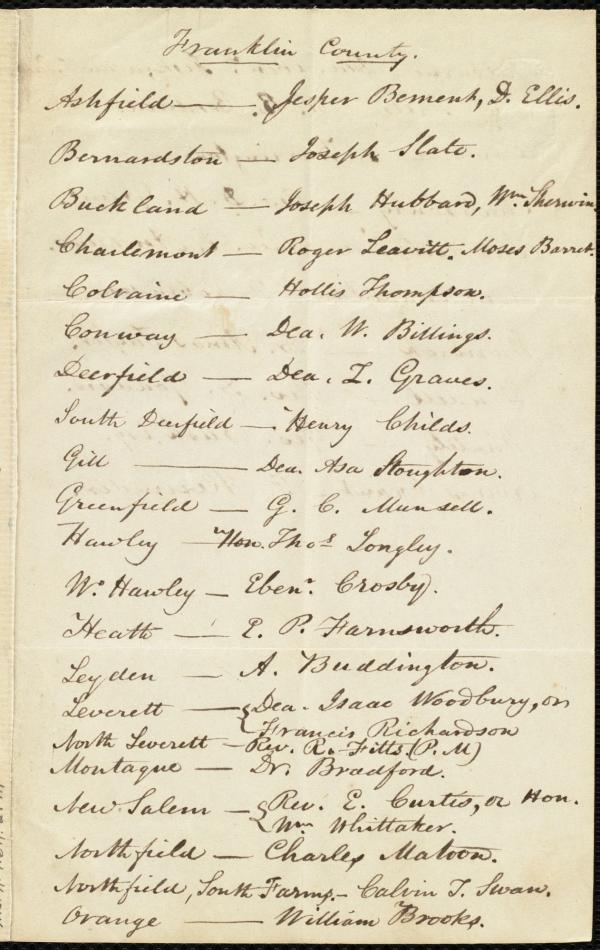 Franklin County.
Ashfield — Jesper Bement, D. Ellis.
Bernardston — Joseph Slate.
Buckland — Joseph Hubbard, Wm. Sherwin.
Charlemont — Roger Leavitt, Moses Barret.
Colraine — Hollis Thompson.
Conway — Dea. W. Billings.
Deerfield — Dea. Z. Graves.
South Deerfield — Henry Childs.
Gill — Dea. Asa Stoughton.
Greenfield — G. C. Munsell.
Hawley — Hon. Thos. Longley.
W. Hawley — Eben. Crosby.
Heath — E. P. Farnsworth.
Leyden — A. Buddington.
Leverett — Dea. Isaac Woodbury, or
Francis Richardson
North Leverett — Rev. R. Fitts. (P. M)
Montague — Dr. Bradford.
New Salem — Rev. E. Curtis, or Hon.
Wm Whittaker.
Northfield — Charles Matoon.
Northfield, South Farms — Calvin T. Swan.
Orange — William Brooks.